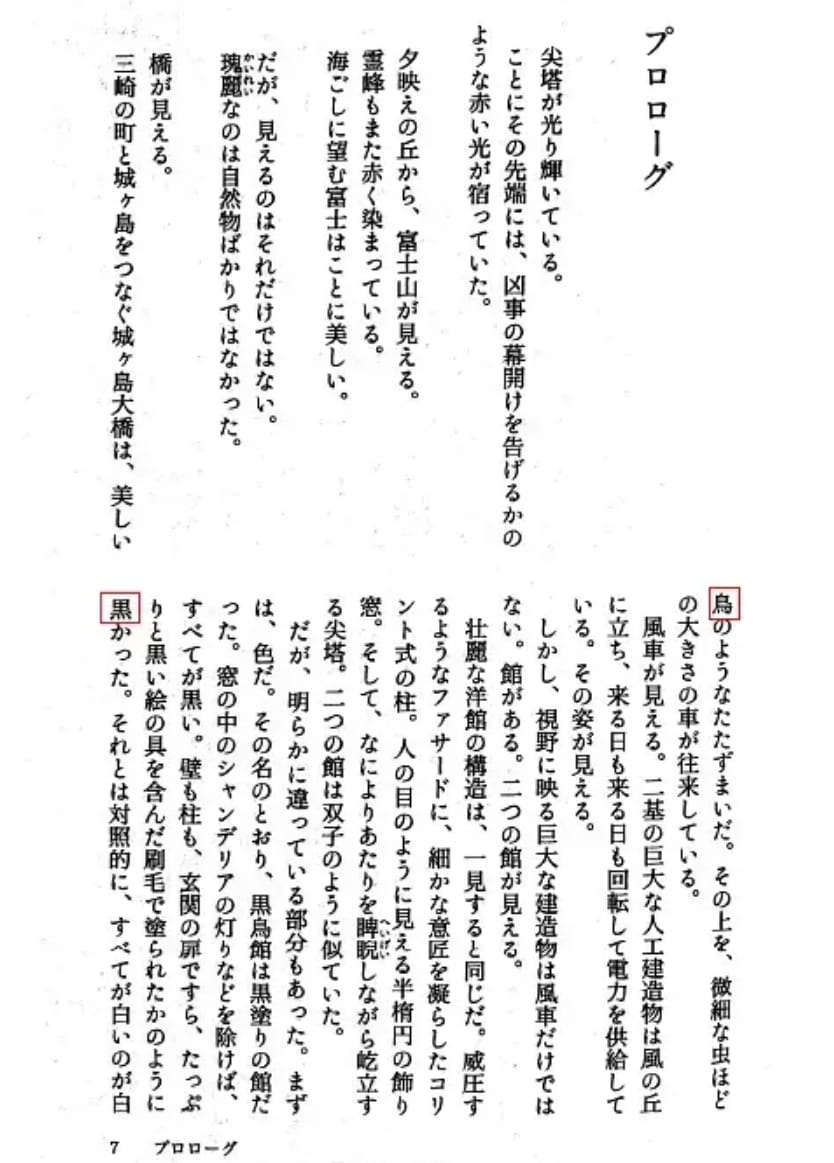 プロローグ
尖塔が光り輝いている。
ことにその先端には、凶事の幕開けを告げるかの
ような赤い光が宿っていた。
夕映えの丘から、富士山が見える。
霊峰もまた赤く染まっている。
海ごしに望む富士はことに美しい。
だが、見えるのはそれだけではない。
瑰麗なのは自然物ばかりではなかった。
かいれい
橋が見える。
三崎の町と城ヶ島をつなぐ城ヶ島大橋は、美しい
鳥のようなたたずまいだ。その上を、微細な虫ほど
の大きさの車が往来している。
風車が見える。二基の巨大な人工建造物は風の丘
に立ち、来る日も来る日も回転して電力を供給して
いる。その姿が見える。
しかし、視野に映る巨大な建造物は風車だけでは
ない。館がある。二つの館が見える。
壮麗な洋館の構造は、一見すると同じだ。威圧す
るようなファサードに、細かな意匠を凝らしたコリ
ント式の柱。人の目のように見える半楕円の飾り
窓。そして、なによりあたりを睥睨しながら屹立す
へいげい
る尖塔。二つの館は双子のように似ていた。
だが、明らかに違っている部分もあった。まず
は、色だ。その名のとおり、黒鳥館は黒塗りの館だ
った。窓の中のシャンデリアの灯りなどを除けば、
すべてが黒い。壁も柱も、玄関の扉ですら、たっぷ
りと黒い絵の具を含んだ刷毛で塗られたかのように
黒かった。それとは対照的に、すべてが白いのが白
7 プロローグ